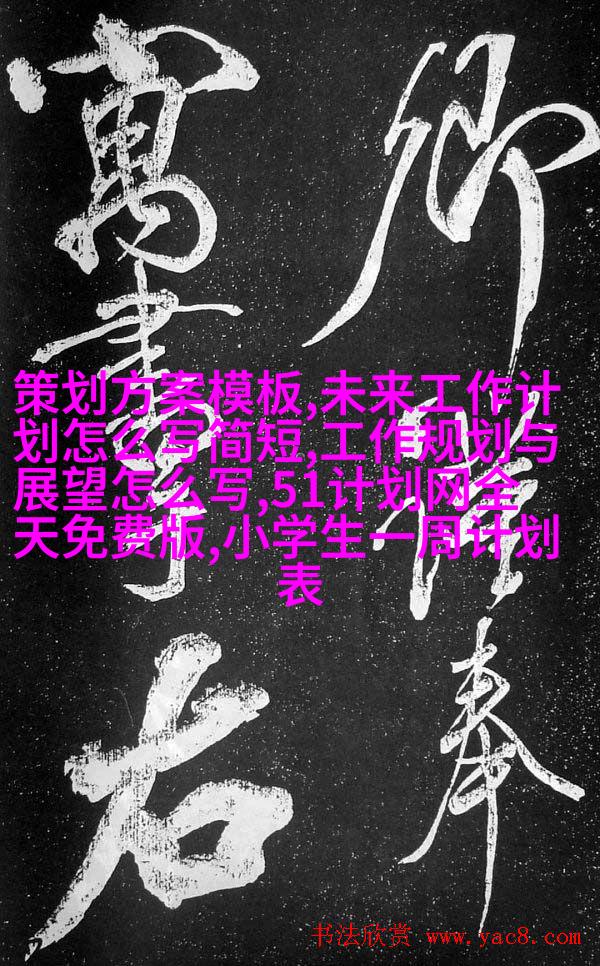 卿奉
寓書右
策划方案模板,未来工作计
划怎么写简短,工作规划与
展望怎么写,51计划网全
天免费版,小学生一周计划
表
书法欣赏 www.yac8.com